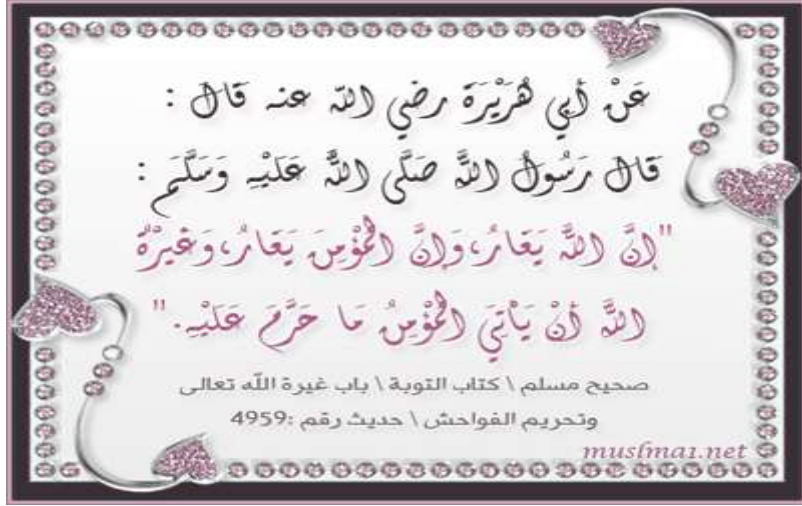 عَنْ أَبِي هُرَيْرَةَ رضي اللّه عنه قَالَ :
قَالَ رَسُولُ اللَّهِ صَلَّى اللَّهُ عَلَيْهِ وَسَلَّمَ :
"إِنَّ اللَّهَ يَغَارُ، وَإِنَّ الْمُؤْمِنَ يَغَارُ، وَغَيْرَةُ
اللَّهِ أَنْ يَأْتِيَ الْمُؤْمِنُ مَا حَرَّمَ عَلَيْهِ."
صحيح مسلم \ كتاب التوبة \ باب غيرة اللّه تعالى
وتحريم الفواحش \ حديث رقم :4959
muslma1.net